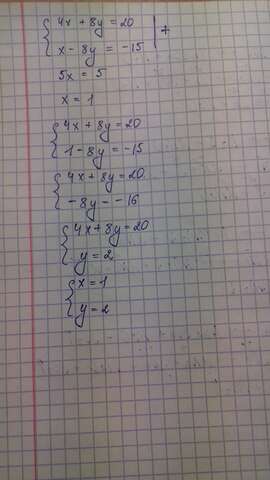 4x + 8y = 20 | +
x - 8y = -15
5x = 5
x = 1
4x + 8y = 20
1 - 8y = -15
4x + 8y = 20
-8y = -16
4x + 8y = 20
y = 2
x = 1
y = 2